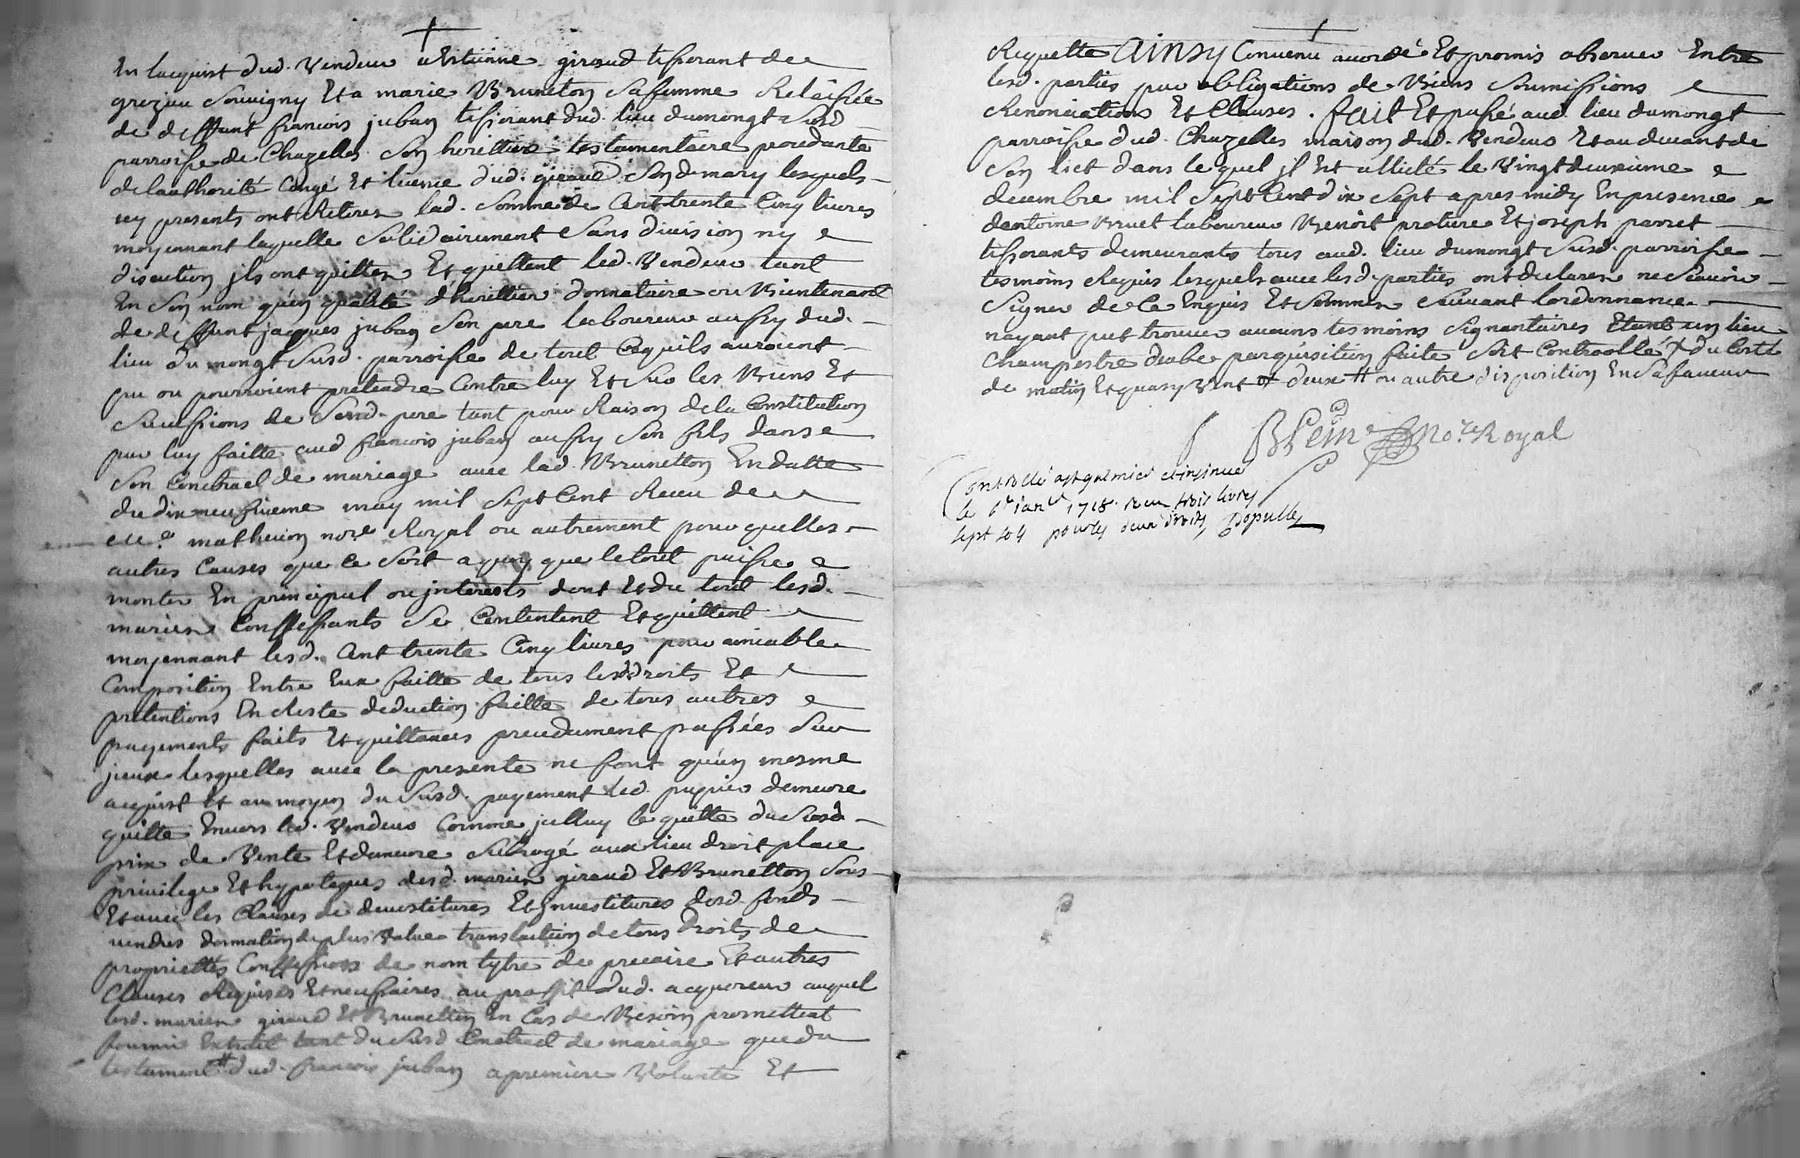 En lacquist dud. Vendeur a Estienne giraud tissirant de
grezieu Souvigny Et a marie Brunetton Sa femme Relaissée
de deffunt francois juban tissirant dud. lieu dumongt Susd
parroisse de Chazelles Son heritiere testamentaire procedante
de lauthorité Congé Et licence dud. giraud Sond. mary lesquels
icy presents ont Retirer lad. Somme de Cent trente Cinq livres
moyennant laquelle Solidairement Sans division ny
discution jls ont quitter Et quittent led. Vendeur tant
En Son nom quen qualité dheritier donnataire ou Bientenant
de deffunt jacques juban Son pere laboureur aussy dud.
lieu du mongt Susd. parroisse de tout Ce quils auroient
pu ou pourroient pretendre Contre luy Et Sur les Biens Et
Successions de Sond. pere tant pour Raison de la Constitution
par luy faitte aud francois juban aussy Son fils dans
Son Contract de mariage avec lad. Brunetton En datte
du dix neufvieme may mil Sept Cent Receu de
me. mathevon nore Royal ou autrement pour quelles
autres Causes que Ce Soit a quoy que le tout puisse
monter En principal ou jnterests dont Et du tout lesd.
mariers Confessants Se Contentent Et quittent
moyennant lesd. Cent trente Cinq livres pour amiable
Composition Entre Eux faitte de tous lesd droits Et
pretentions En Reste deduction faitte de tous autres
payements faits Et quittances precedament passées Sur
jceux lesquelles avec la presente ne font quun mesme
acquist Et au moyen du Susd. payement led. papier demeure
quitte Envers led. Vendeur Comme jcelluy le quitte du Susd
prix de Vente Et demeure Subrogé aux lieu droit place
privilege Et hypoteques desd. mariers giraud Et Brunetton Sous
Et avec les Clauses de devestitures Et jnvestitures desd. fonds
vendus donnation de plus Value translaction de tous Droits de
proprietté Confession de nom tytre de precaire Et autres
Clauses Requises Et necessaires au proffit dud. acquereur auquel
lesd. mariers giraud Et Brunetton En Cas de Besoin promettent
fournir Extrait tant du Susd Contract de mariage que du
testament dud. francois juban a premiere Volonté Et
Requette Ainsy Convenu accordé Et promis observer Entre
lesd. parties par obligations de Biens Soumissions
Renonciations Et Clauses. fait Et passé aud. lieu dumongt
parroisse dud. Chazelles maison dud. Vendeur Et au devant de
Son lict dans lequel jl Est allicté le Vingt deuxieme
decembre mil Sept Cent dix Sept apres midy En presence
dantoine Bruet laboureur Benoist proture Et joseph parret
tissirants demeurants tous aud. lieu dumongt Susd. parroisse
tesmoins Requis lesquels avec lesd. parties ont declarer ne Scavoir
Signer de Ce Enquis Et Sommer Suivant lordonnance
nayant put trouver aucuns tesmoins Signantaires Etant un lieu
Champestre diable parquisition faite Soit Controollé + du Costé
de matin Et quasy Vent # deux # ou autre disposition En Sa faveur
Nore Royal
Controllé et insinué
le 1718. Receu trois livres
sept sols pour les deux droits